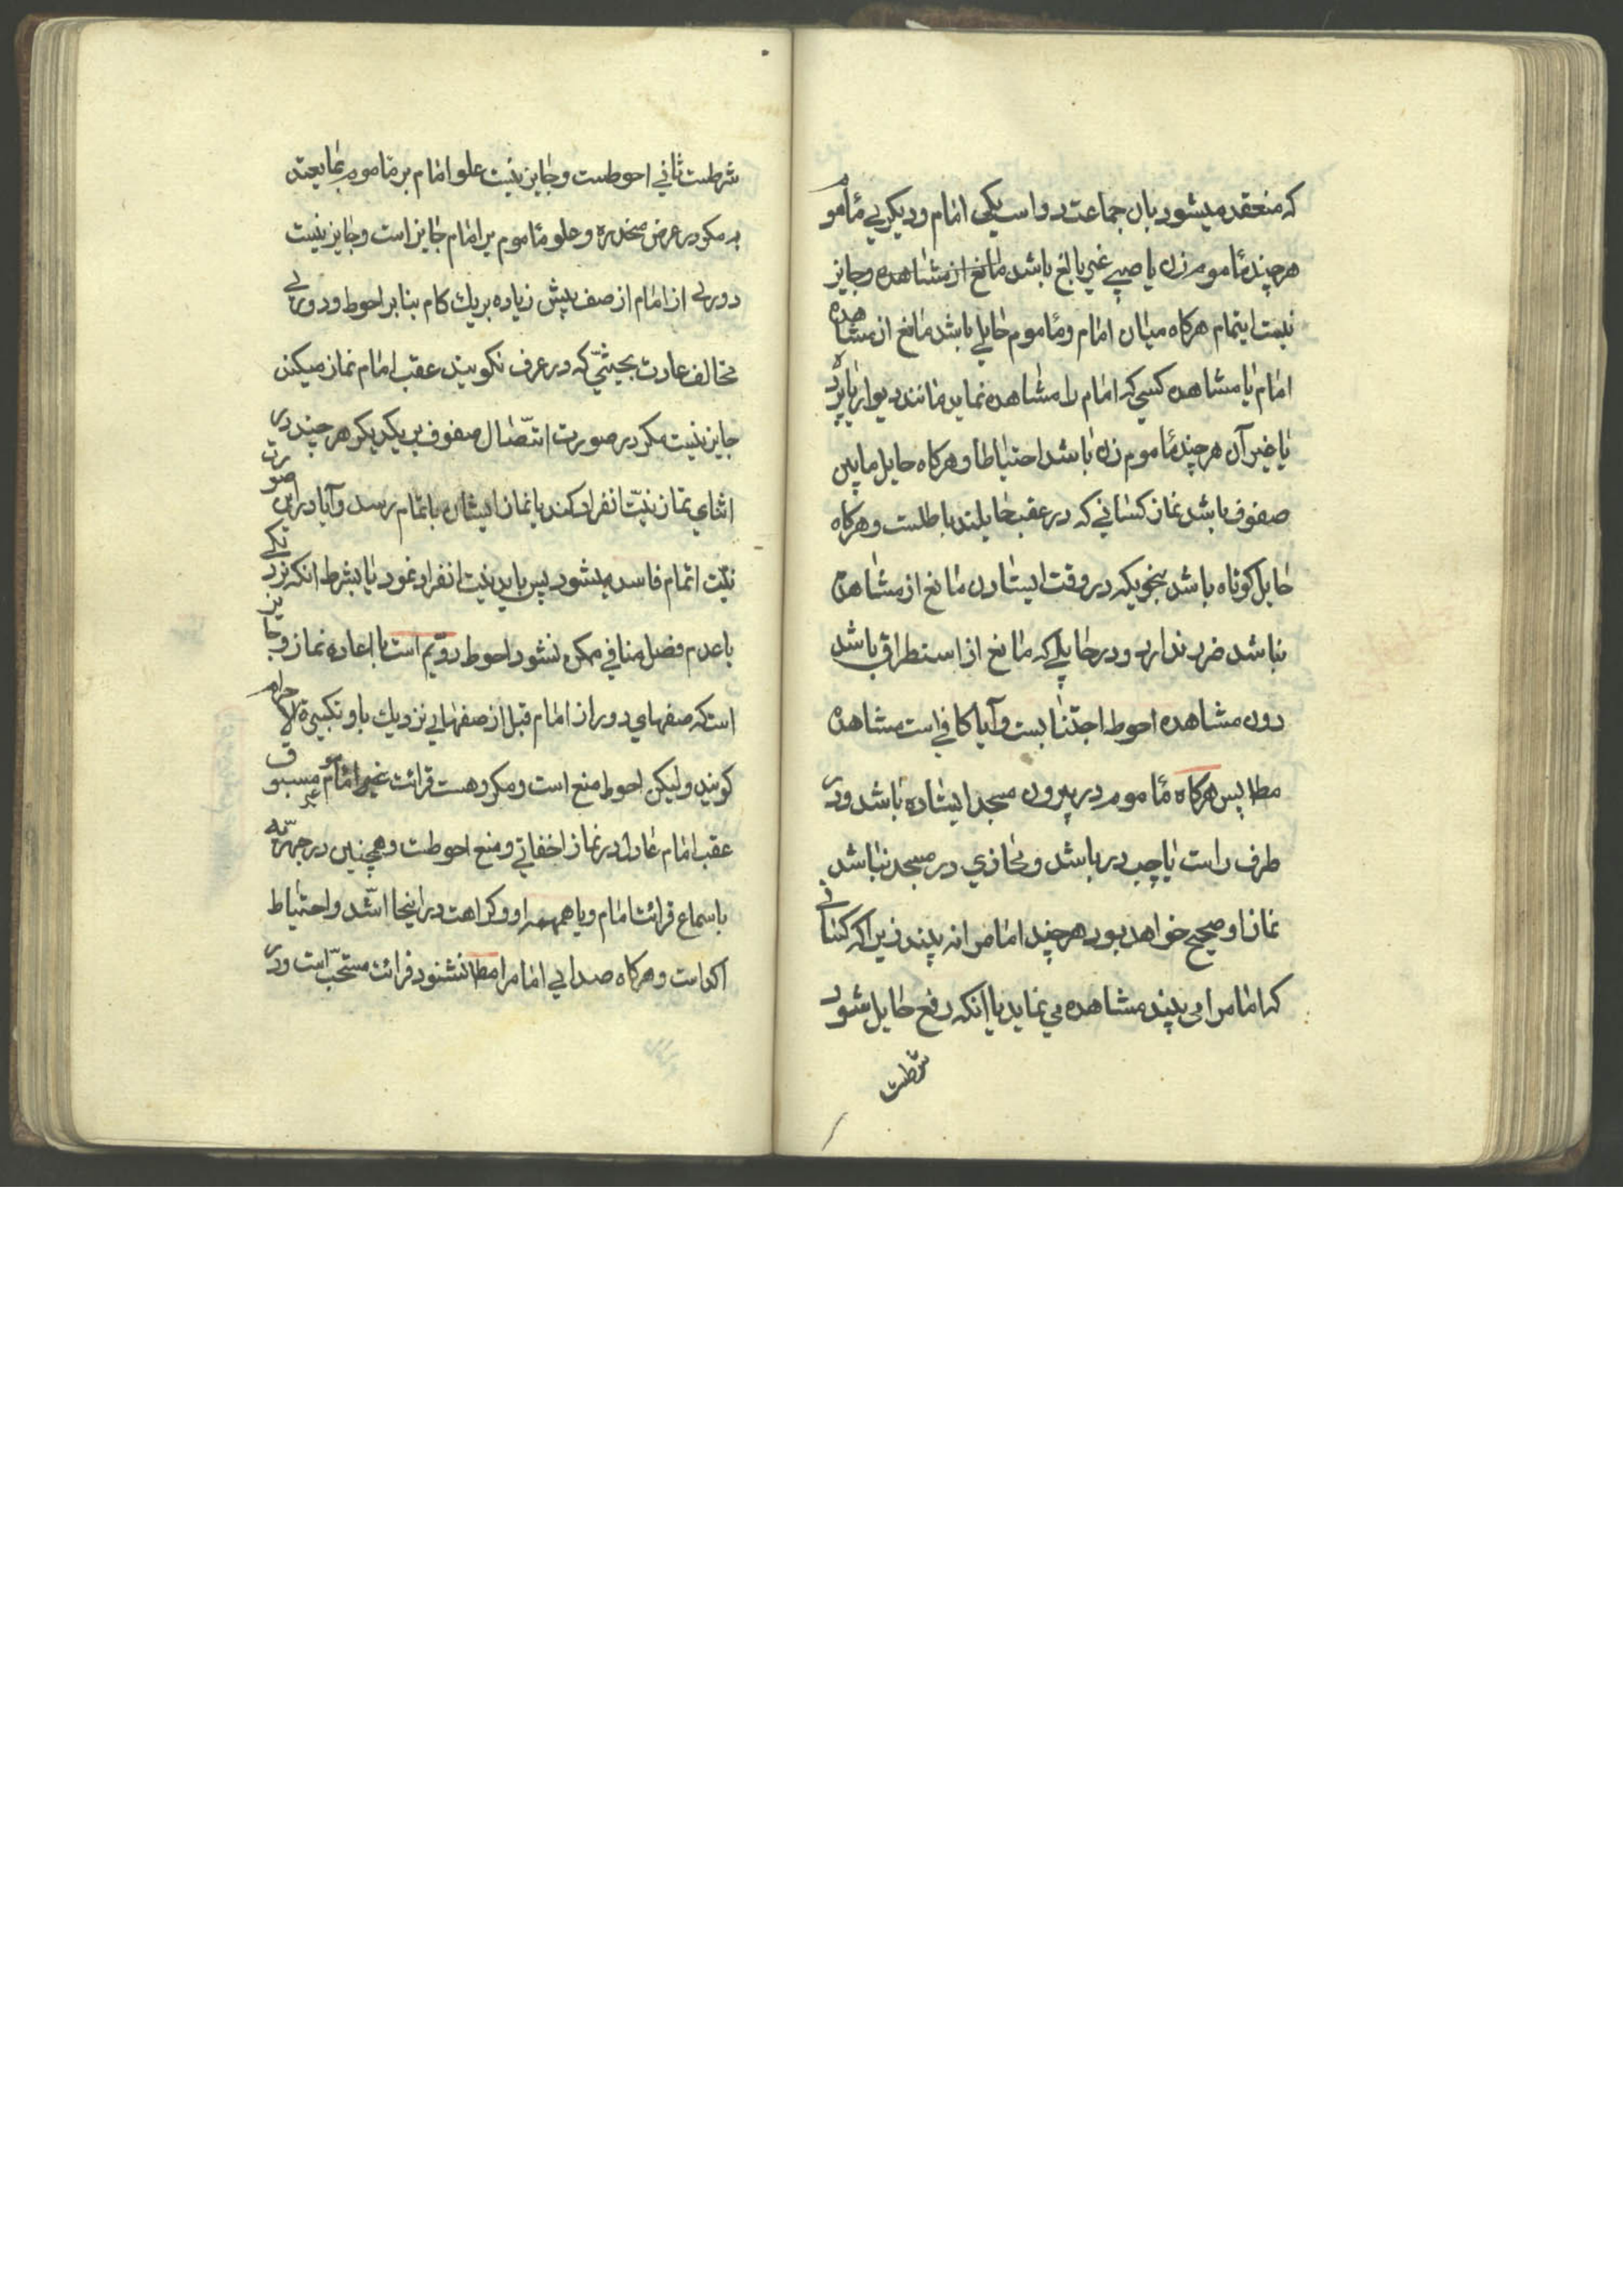 که منعقد میشود بان جماعت دو است یکی امام و دیگری مأموم
هر چند مأموم زن یا صبی غیر بالغ باشد مانع از مشاهده و جایز
نیست ایتمام هرکاه میان امام و مأموم حایلی باشد مانع از مشاهده
امام یا مشاهده کسی که امام را مشاهده نماید مانند دیوار یا پرده
یا غیر آن هر چند مأموم زن باشد احتیاطا و هرکاه حایل مابین
صفوف باشد نماز کسانی که در عقب حایلند باطلست و هرکاه
حایل کوتاه باشد بنحویکه در وقت ایستادن مانع از مشاهده
نباشد ضرر ندارد و در حایلی که مانع از استطراق باشد
دون مشاهده احوط اجتنابست و آیا کافی است مشاهده
مطا پس هرکاه مأموم در بیرون مسجد ایستاده باشد و در
طرف راست یا چپ در باشد و محاذی در مسجد نباشد
نماز او صحیح خواهد بود هر چند امام را نه بیند زیرا که کسانی
که امام را می بیند مشاهده می نماید یا آنکه رفع حایل شود
شرطست
شرطست ثانی احوطست و جایز نیست علو امام بر مأموم بما یعتد
به مکر در عرض منحدره و علو مأموم بر امام جایز است و جایز نیست
دوری از امام از صف پیش زیاده بر یك کام بنا بر احوط و دوری
مخالف عادت بحیثی که در عرف نکویند عقب امام نماز میکند
جایز نیست مکر در صورت اتصال صفوف بر یکدیکر هر چند در
اثنای نماز نیت انفراد کند یا نماز ایشان باتمام رسد و آیا در این صورت
نیت اتمام فاسد میشود پس باید نیت انفراد نمود یا بشرط انکه نزدیکی
با عدم فصل منافی ممکن نشود احوط دویم است با اعاده نماز و جایز
است که صفهای دور از امام قبل از صفهایی نزدیك باو تکبیرة الاحرام
کویند ولیکن احوط منع است و مکروهست قرائت غیر مأموم مسبوق
عقب امام عادل در نماز اخفاتی و منع احوطت و همچنین در جهریه
باسماع قرائت امام و یا همهمه او و کراهت در اینجا اشد و احتیاط
اکد است و هرکاه صدایی امام را مطا نشنود قرائت مستحب است و در